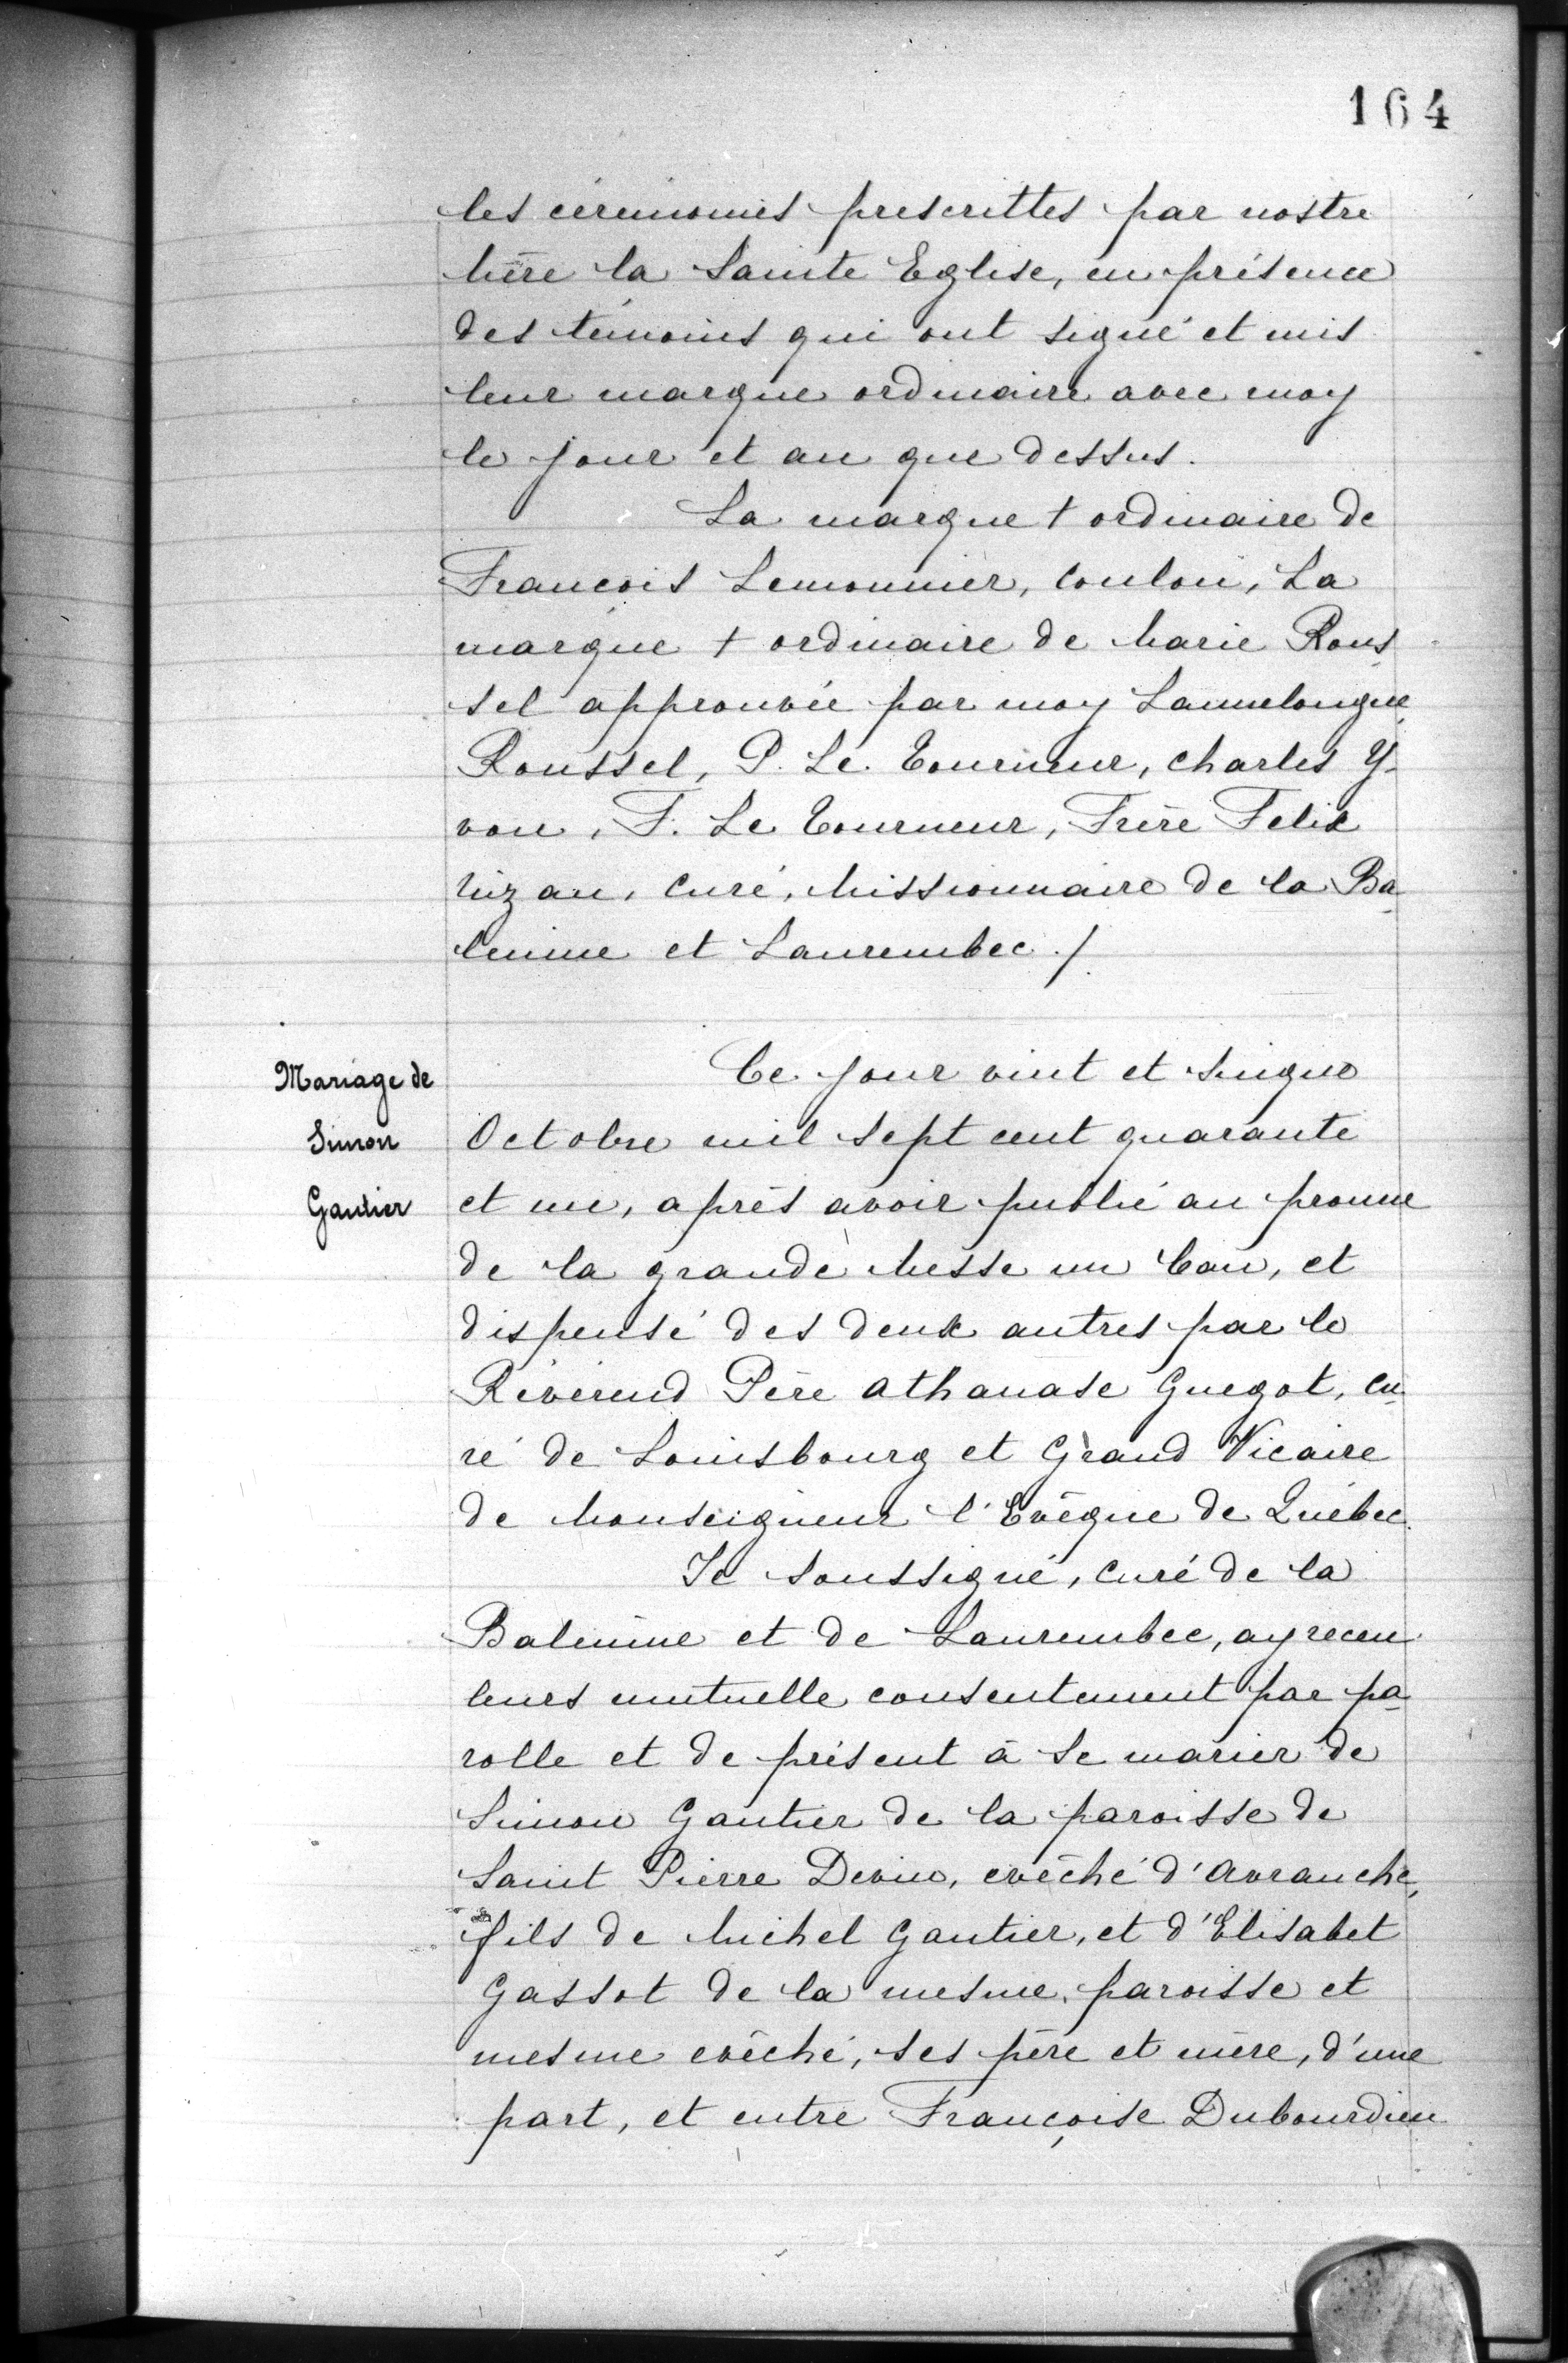 164
les cérémonies prescrittes par nostre
Mère la Sainte Eglise, en présence
des témoins qui ont signé et mis
leur marque ordinaire avec moy
le jour et an que dessus.
La marque + ordinaire de
Francois Lemonnier, Coulon, La
marque + ordinaire de Marie Rous
sel approuvée par moy Lannelongue
Roussel, P. Le Tourneur, Charles Y-
von, F. Le Tourneur, Frère Felix
Nizan, Curé, Missionnaire de la Ba-
leinne et Laurembec ./.
Mariage de
Simon
Gautier
Ce jour vint et sinque
Octobre mil sept cent quarante
et un, après avoir publié au pronne
de la grande Messe un ban, et
dispensé des deux autres par le
Révérend Père Athanase Guegot, Cu-
ré de Louisbourg et Grand Vicaire
de Monseigneur l'Evêque de Québec.
Je soussigné, Curé de la
Baleinne et de Laurembec, ay receu
leurs mutuelle consentement par pa-
rolle et de présent à se marier de
Simon Gautier de la paroisse de
Saint Pierre Devin, evêché d'Avranche,
fils de Michel Gautier, et d'Elisabet
Gassot de la mesme paroisse et
mesme evêché, ses père et mère, d'une
part, et entre Françoise Dubourdieu